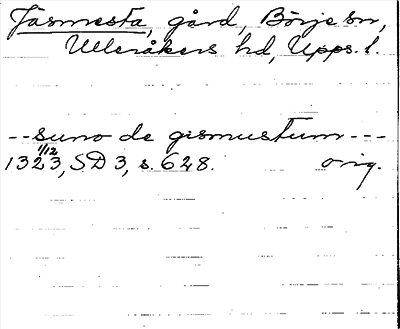 Jäsmesta, gård, Börje sn,
Ulleråkers hd, Upps. l.
--suno de gismustum---
1/12
1323, SD 3, s. 628. orig.